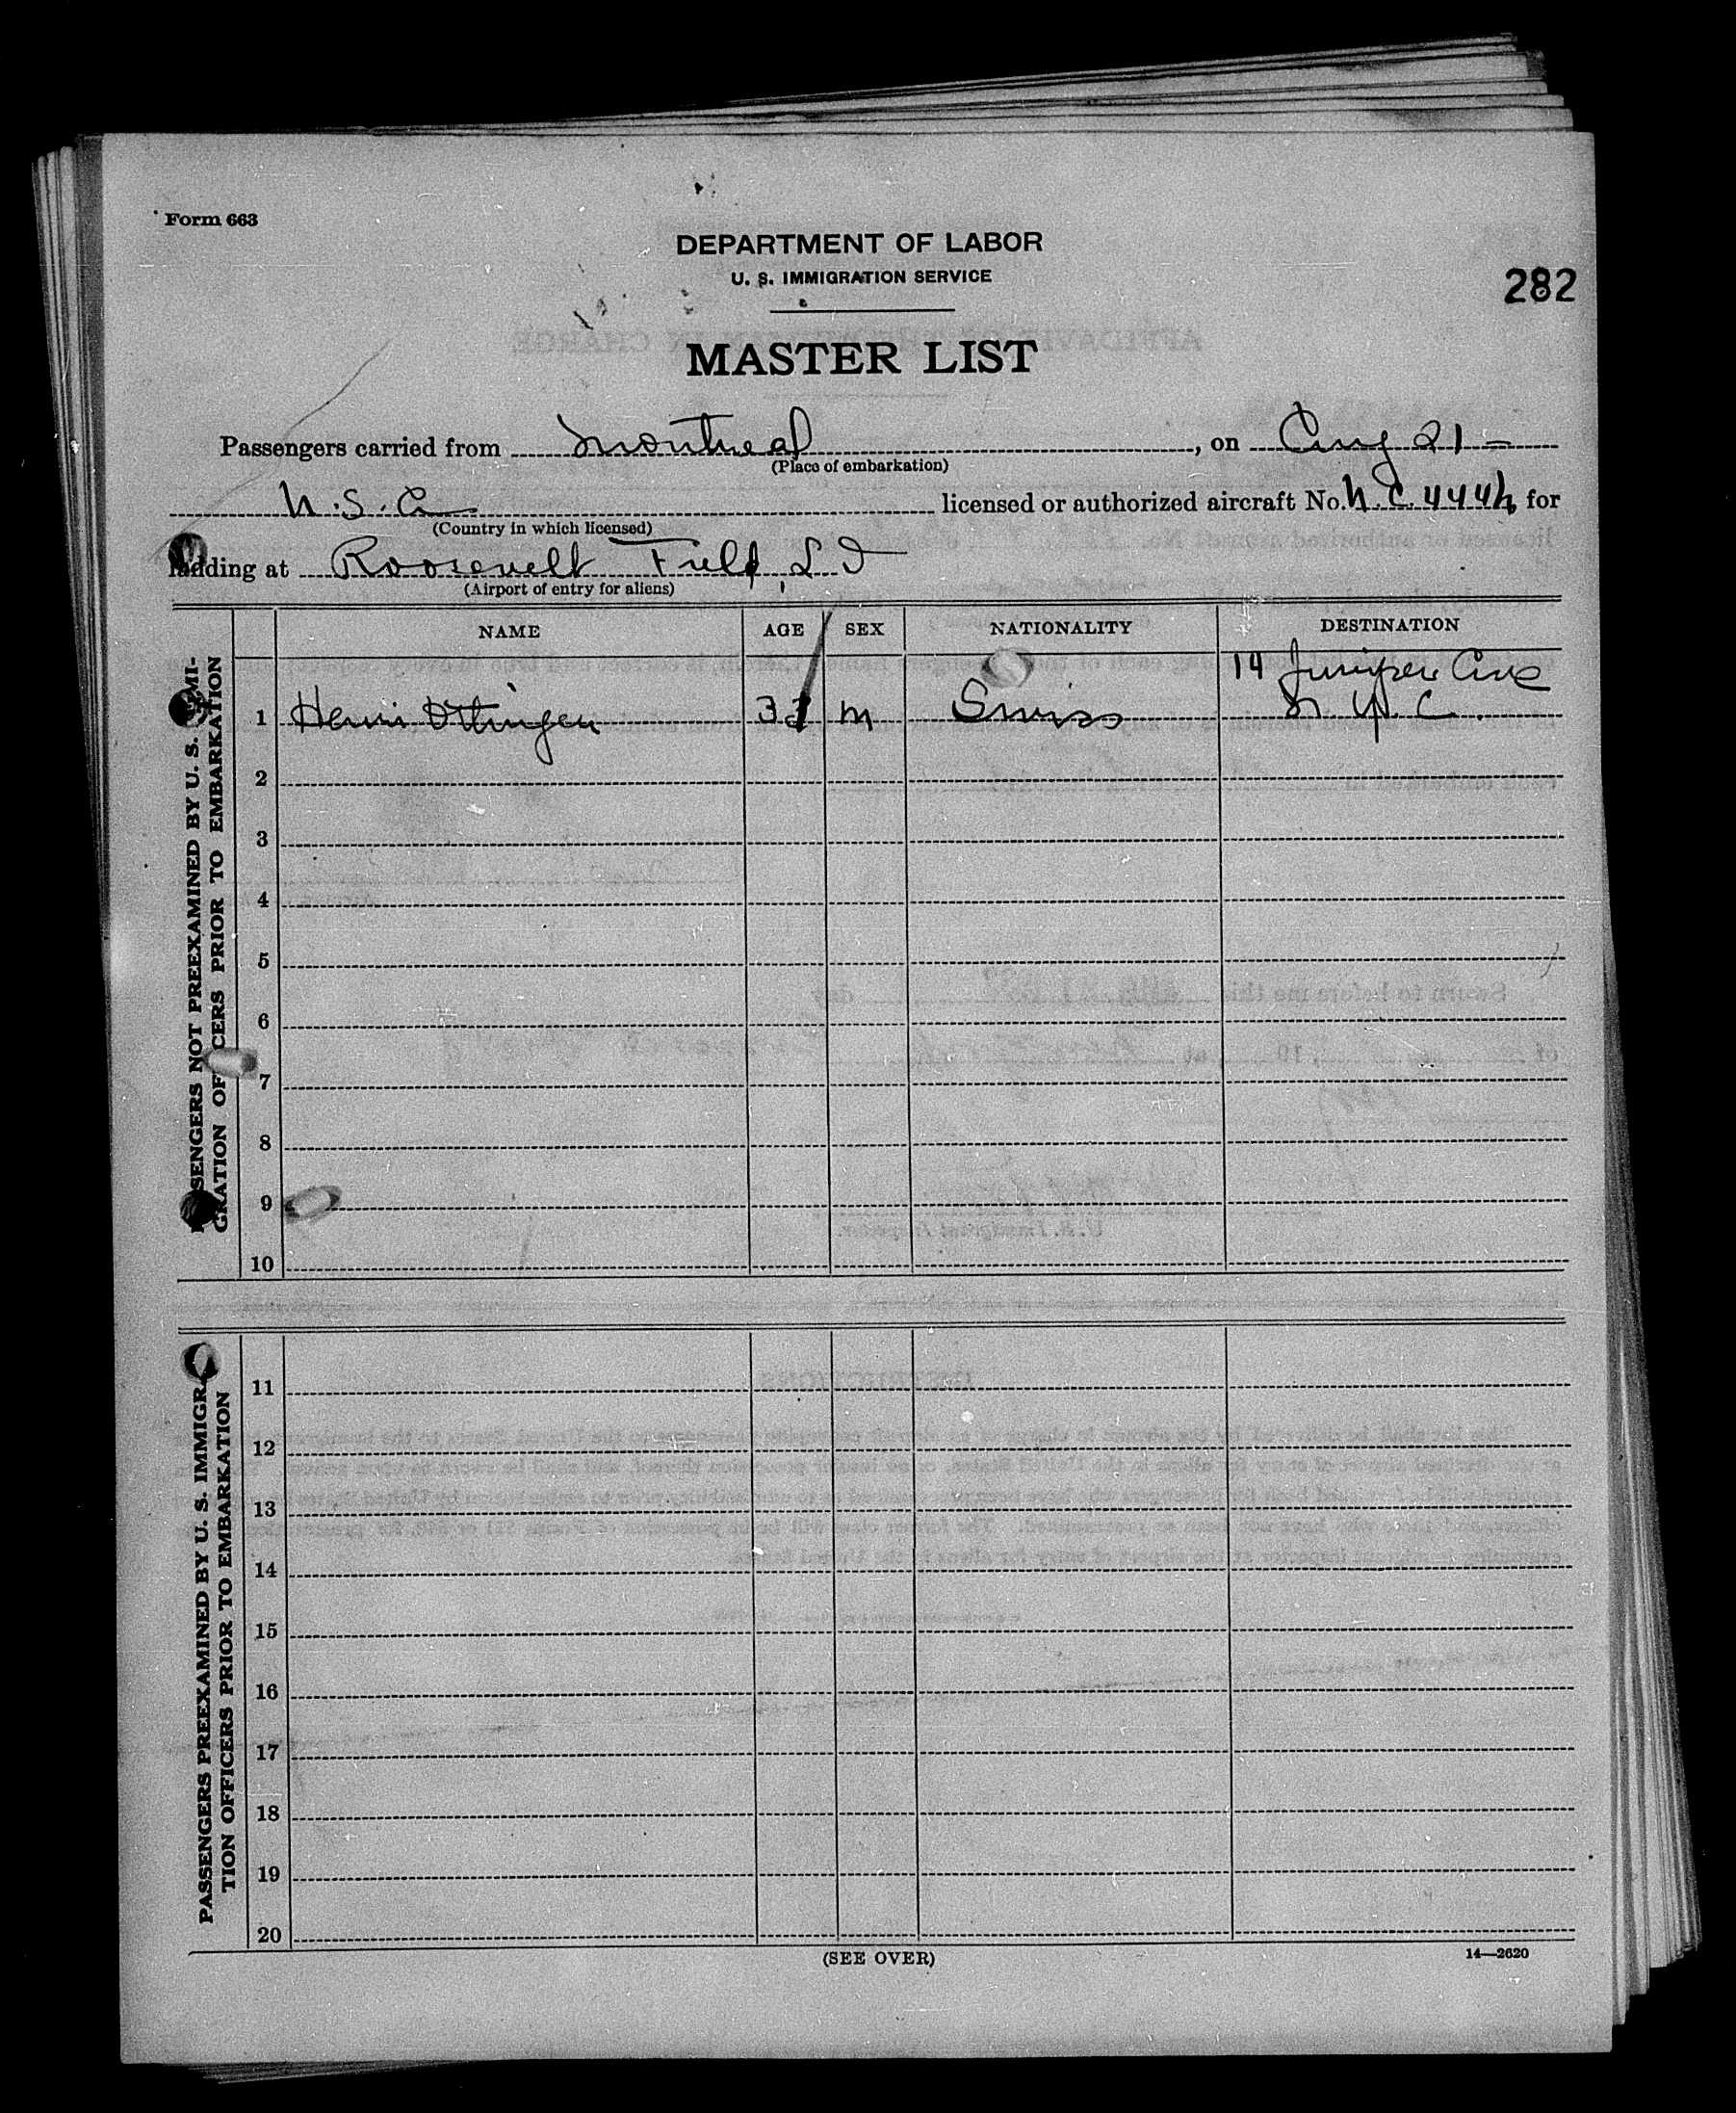 Form 663
DEPARTMENT OF LABOR
U. S. IMMIGRATION SERVICE
282
MASTER LIST
Passengers carried from Montreal, on Aug 21 -
(Place of embarkation)
U.S.A. licensed or authorized aircraft No. N.C. 444h for
(Country in which licensed)
landing at Roosevelt Field, L I
(Airport of entry for aliens)
NAME AGE SEX NATIONALITY DESTINATION
14 Juniper Ave
1 Henri Ottingen 33 M Swiss N.Y.C.
2
3
4
5
6
7
8
9
10
PASSENGERS NOT PREEXAMINED BY U. S. IMMI-
GRATION OFFICERS PRIOR TO EMBARKATION
11
12
13
14
15
16
17
18
19
20
PASSENGERS PREEXAMINED BY U. S. IMMIGRA-
TION OFFICERS PRIOR TO EMBARKATION
(SEE OVER)
14—2620